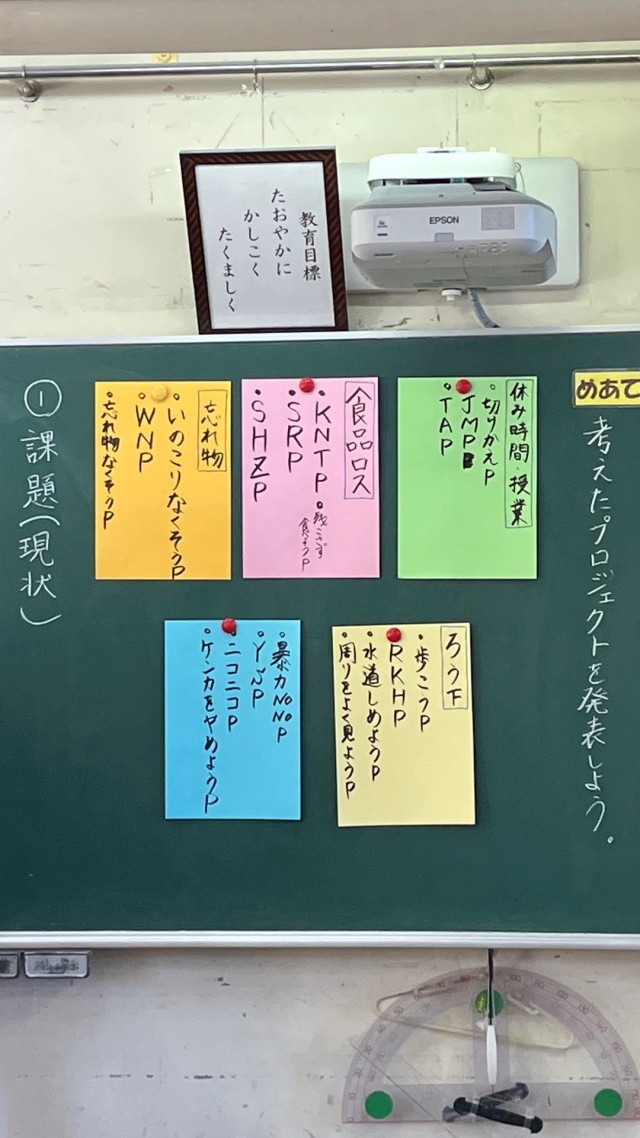 教育目標
たおやかに
かしこく
たくましく
EPSON
めあて
考えたプロジェクトを発表しよう。
休み時間・授業
・切りかえP
・JMP
・TAP
食品ロス
・KNTP
・残こさず食べようP
・SRP
・SHZP
忘れ物
・いのこりなくそうP
・WNP
・忘れ物なくそうP
①課題(現状)
ろう下
・歩こうP
・RKHP
・水道しめようP
・周りをよく見ようP
・暴力NONOP
・ニコニコP
・ケンカをやめようP